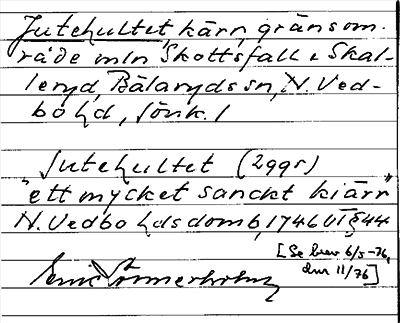 Jutehultet, kärr, gränsom-
råde mln Skottsfall o Skal-
leryd, Bälaryds sn, N. Ved-
bo hd, Jönk. l
Jutehultet (2 ggr)
"ett mycket sanckt kiärr"
N. Vedbo hds domb, 1746 VT § 44
[Se brev 6/5-76,
dnr 11/76]